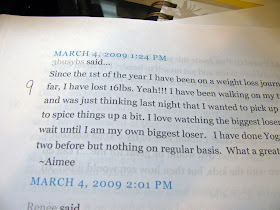 MARCH 4, 2009 1:24 PM
3busybs said...
9
Since the 1st of the year I have been on a weight loss journ
far, I have lost 16lbs. Yeah!!! I have been walking on my t
and was just thinking last night that I wanted to pick up
to spice things up a bit. I love watching the biggest loser
wait until I am my own biggest loser. I have done Yog
two before but nothing on regular basis. What a great
~Aimee
MARCH 4, 2009 2:01 PM
Renee said...